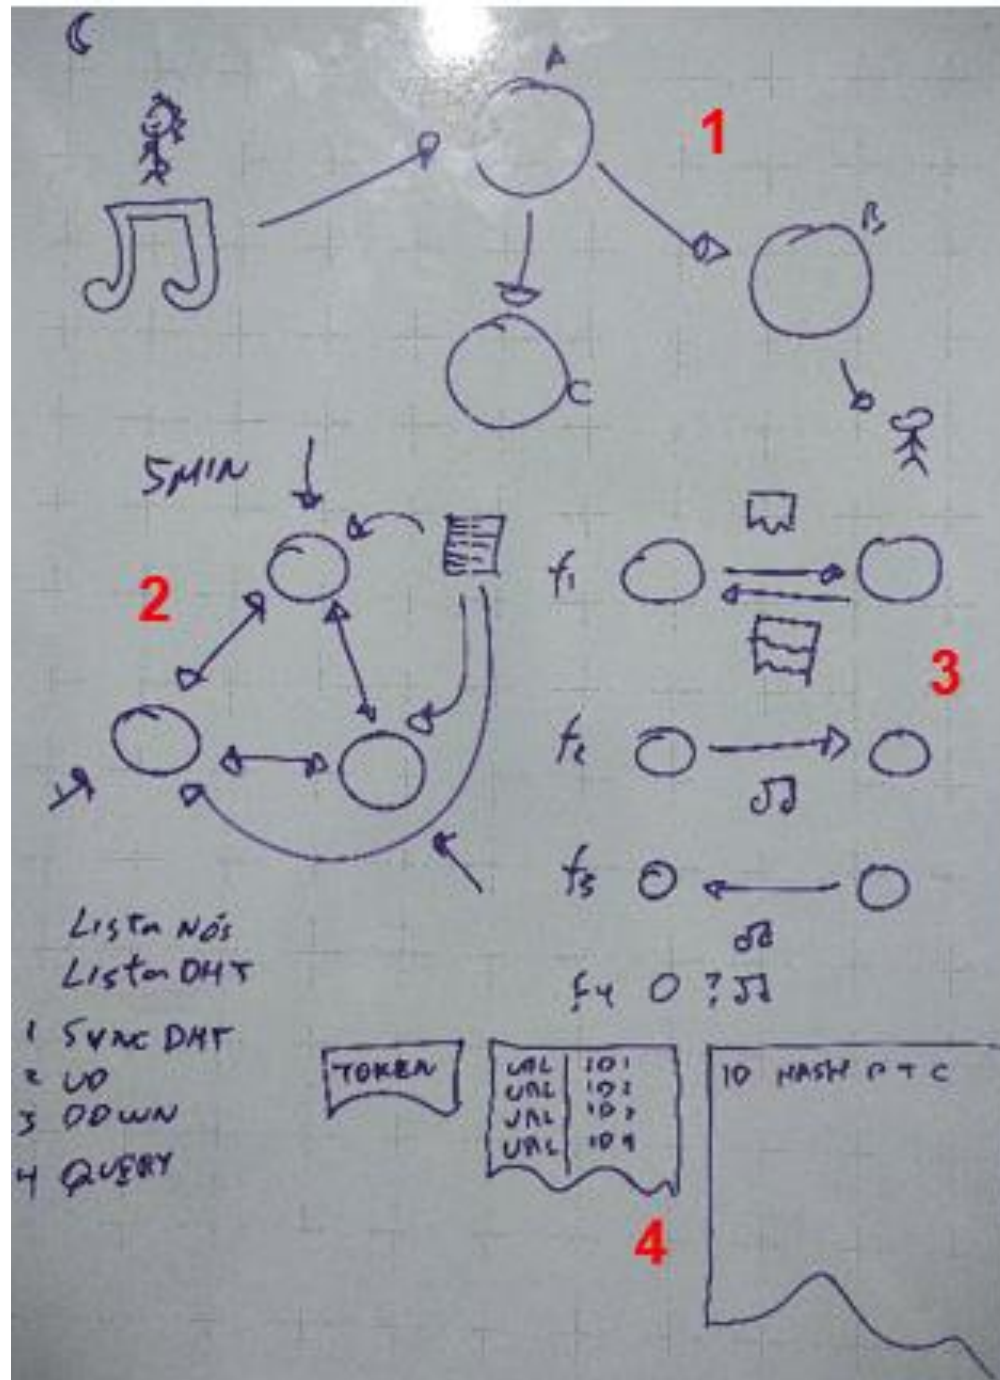 A
1
B
C
5MIN
2
f1
3
f2
f3
f4 ?
Lista Nós
Lista DHT
1 SYNC DHT
2 UP
3 DOWN
4 QUERY
TOKEN
URL ID1
URL ID2
URL ID3
URL ID4
4
ID HASH P T C